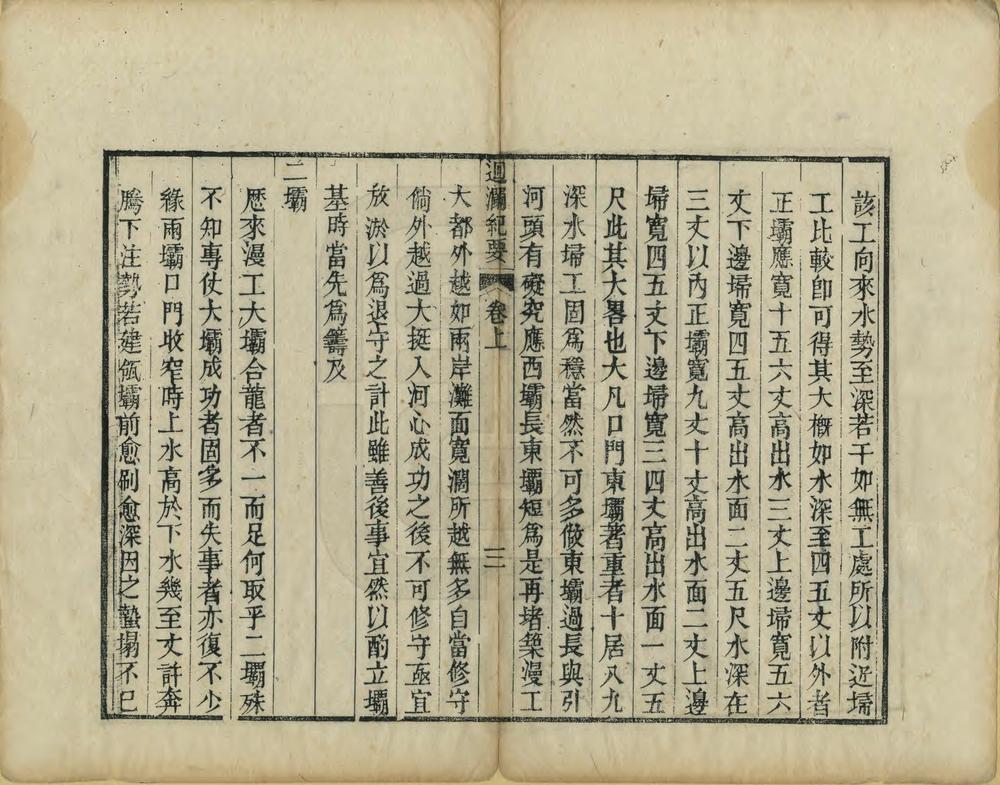 該工向來水勢至深若干如無工處所以附近埽
工比較卽可得其大概如水深至四五丈以外者
正壩應寬十五六丈高出水三丈上邊埽寬五六
丈下邊埽寬四五丈高出水面二丈五尺水深在
三丈以內正壩寬九丈十丈高出水面二丈上邊
埽寬四五丈下邊埽寬三四丈高出水面一丈五
尺此其大畧也大凡口門東壩著重者十居八九
深水埽工固爲穩當然不可多做東壩過長與引
河頭有礙究應西壩長東壩短爲是再堵築漫工
迴瀾紀要 卷上 三
大都外越如兩岸灘面寬濶所越無多自當修守
倘外越過大挺入河心成功之後不可修守亟宜
放淤以爲退守之計此雖善後事宜然以酌立壩
基時當先爲籌及
二壩
歷來漫工大壩合龍者不一而足何取乎二壩殊
不知專仗大壩成功者固多而失事者亦復不少
緣兩壩口門收窄時上水高於下水幾至丈許奔
騰下注勢若建瓴壩前愈刷愈深因之蟄塌不已